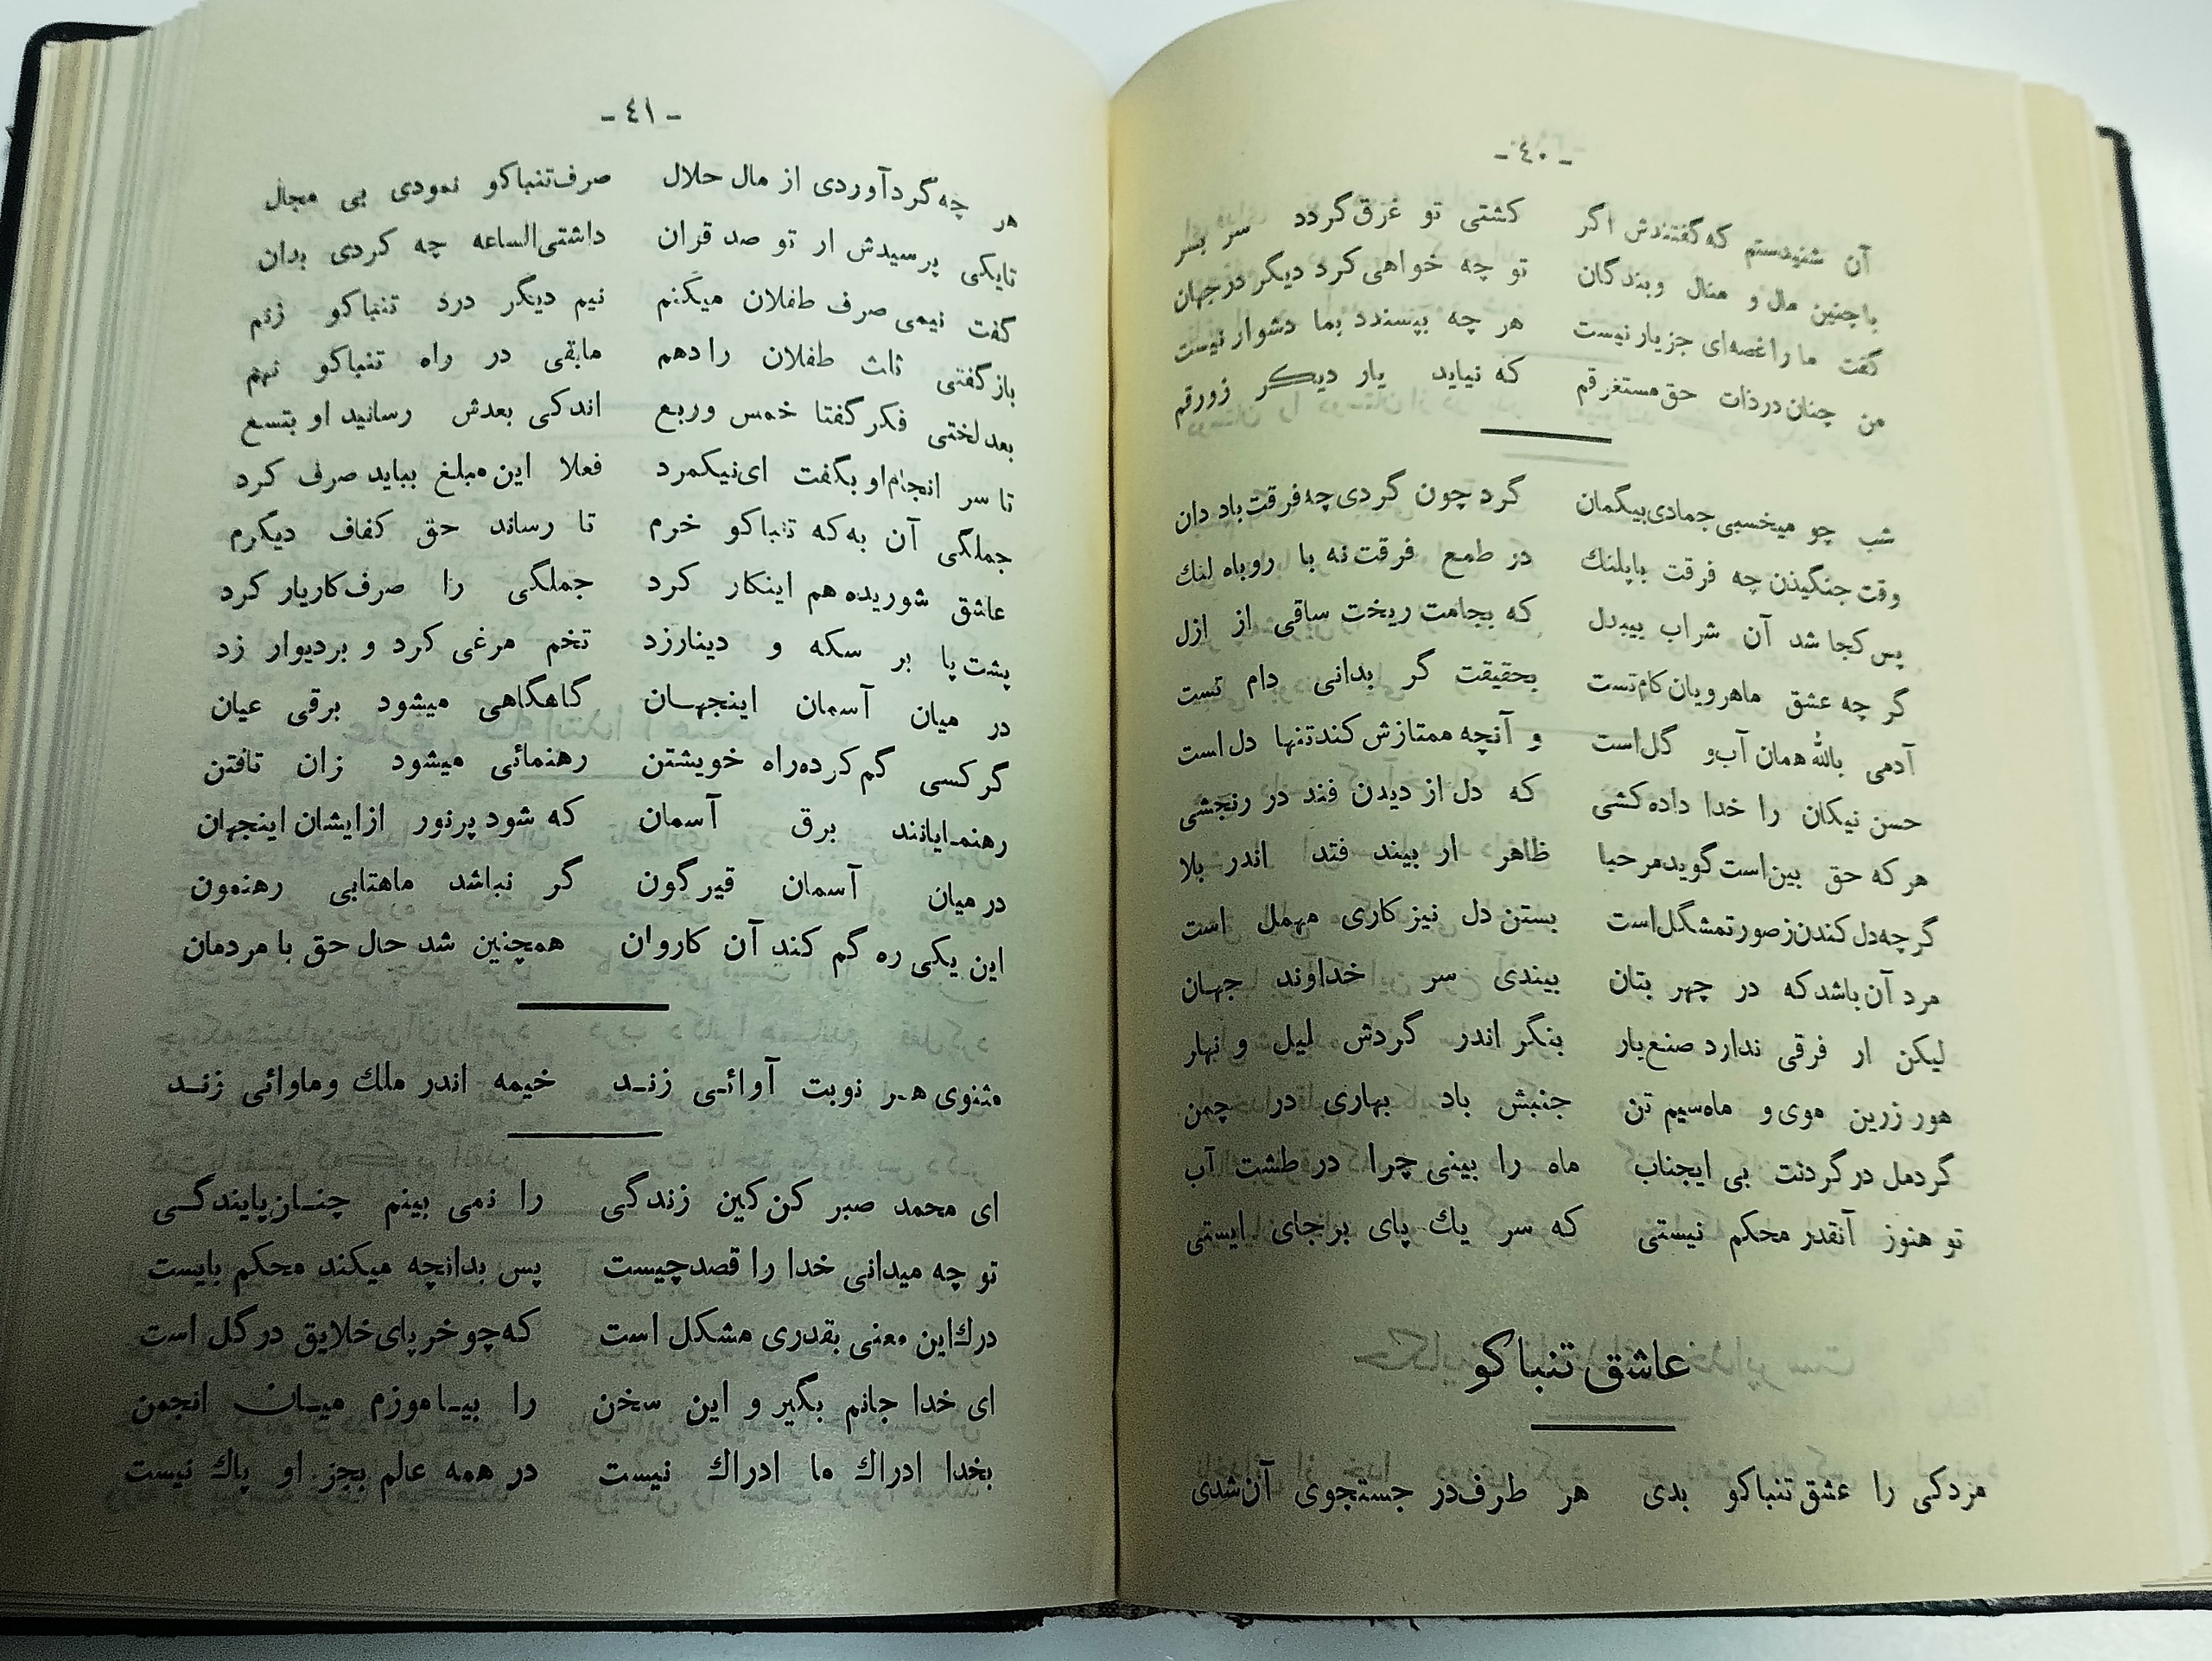 - ٤٠ -
آن شنیدستم که گفتندش اگر کشتی تو غرق گردد سر بسر
با چنین مال و منال و بندگان تو چه خواهی کرد دیگر در جهان
گفت ما را غصه‌ای جز یار نیست هر چه بپسندد بما دشوار نیست
من چنان در ذات حق مستغرقم که نیاید یار دیگر زورقم
شب چو میخسبی جمادی بیگمان گرد چون گردی چه فرقت باد دان
وقت جنگیدن چه فرقت با پلنك در طمع فرقت نه با روباه لنك
پس کجا شد آن شراب بیبدل که بجامت ریخت ساقی از ازل
گر چه عشق ماهرویان کام تست بحقیقت گر بدانی دام تست
آدمی بالله همان آب و گل است و آنچه ممتازش کند تنها دل است
حسن نیکان را خدا داده کشی که دل از دیدن فند در رنجشی
هر که حق بین است گوید مرحبا ظاهر ار بیند فتد اندر بلا
گر چه دل کندن ز صورت مشگل است بستن دل نیز کاری مهمل است
مرد آن باشد که در چهر بتان بیندی سر خداوند جهان
لیکن ار فرقی ندارد صنع یار بنگر اندر گردش لیل و نهار
هور زرین موی و ماه سیم تن جنبش باد بهاری در چمن
گر دمل در گردنت بی ایجناب ماه را بینی چرا در طشت آب
تو هنوز آنقدر محکم نیستی که سر یك پای بر جای ایستی
عاشق تنباکو
مردکی را عشق تنباکو بدی هر طرف در جستجوی آن شدی
- ٤١ -
هر چه گرد آوردی از مال حلال صرف تنباکو نمودی بی مجال
تا یکی پرسیدش ار تو صد قران داشتی الساعه چه کردی بدان
گفت نیمی صرف طفلان میکنم نیم دیگر درد تنباکو زنم
باز گفتی ثلث طفلان را دهم مابقی در راه تنباکو نهم
بعد لختی فکر گفتا خمس و ربع اندکی بعدش رسانید او بتسع
تا سر انجام او بگفت ای نیکمرد فعلا این مبلغ بباید صرف کرد
جملگی آن به که تنباکو خرم تا رساند حق کفاف دیگرم
عاشق شوریده هم اینکار کرد جملگی را صرف کار یار کرد
پشت پا بر سکه و دینار زد تخم مرغی کرد و بر دیوار زد
در میان آسمان اینجهـان گاهگاهی میشود برقی عیان
گر کسی گم کرده راه خویشتن رهنمائی میشود زان تافتن
رهنمـایانند برق آسمان که شود پرنور از ایشان اینجهان
در میان آسمان قیرگون گر نباشد ماهتابی رهنمون
این یکی ره گم کند آن کاروان همچنین شد حال حق با مردمان
مثنوی هـر نوبت آوائـی زنـد خیمه اندر ملك و ماوائی زنـد
ای محمد صبر کن کین زندگی را نمی بینم چنـان پایندگـی
تو چه میدانی خدا را قصد چیست پس بدانچه میکند محکم بایست
درك این معنی بقدری مشکل است که چو خر پای خلایق در گل است
ای خدا جانم بگیر و این سخن را بیـاموزم میـان انجمن
بخدا ادراك ما ادراك نیست در همه عالم بجز او پاك نیست